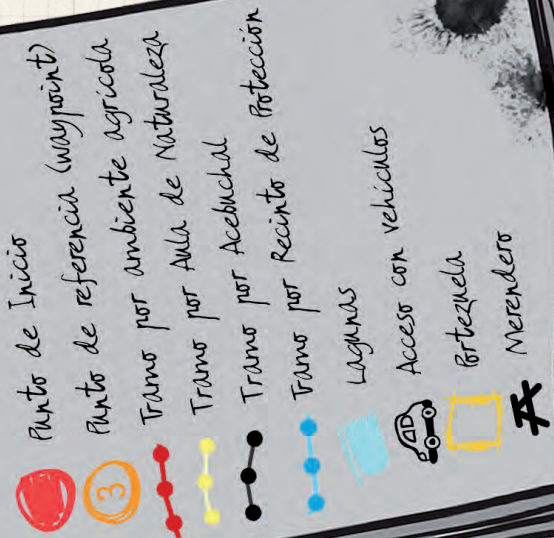 Punto de Inicio
3 Punto de referencia (waypoint)
Tramo por ambiente agrícola
Tramo por Aula de Naturaleza
Tramo por Acebuchal
Tramo por Recinto de Protección
Lagunas
Acceso con vehículos
Portezuela
Merendero